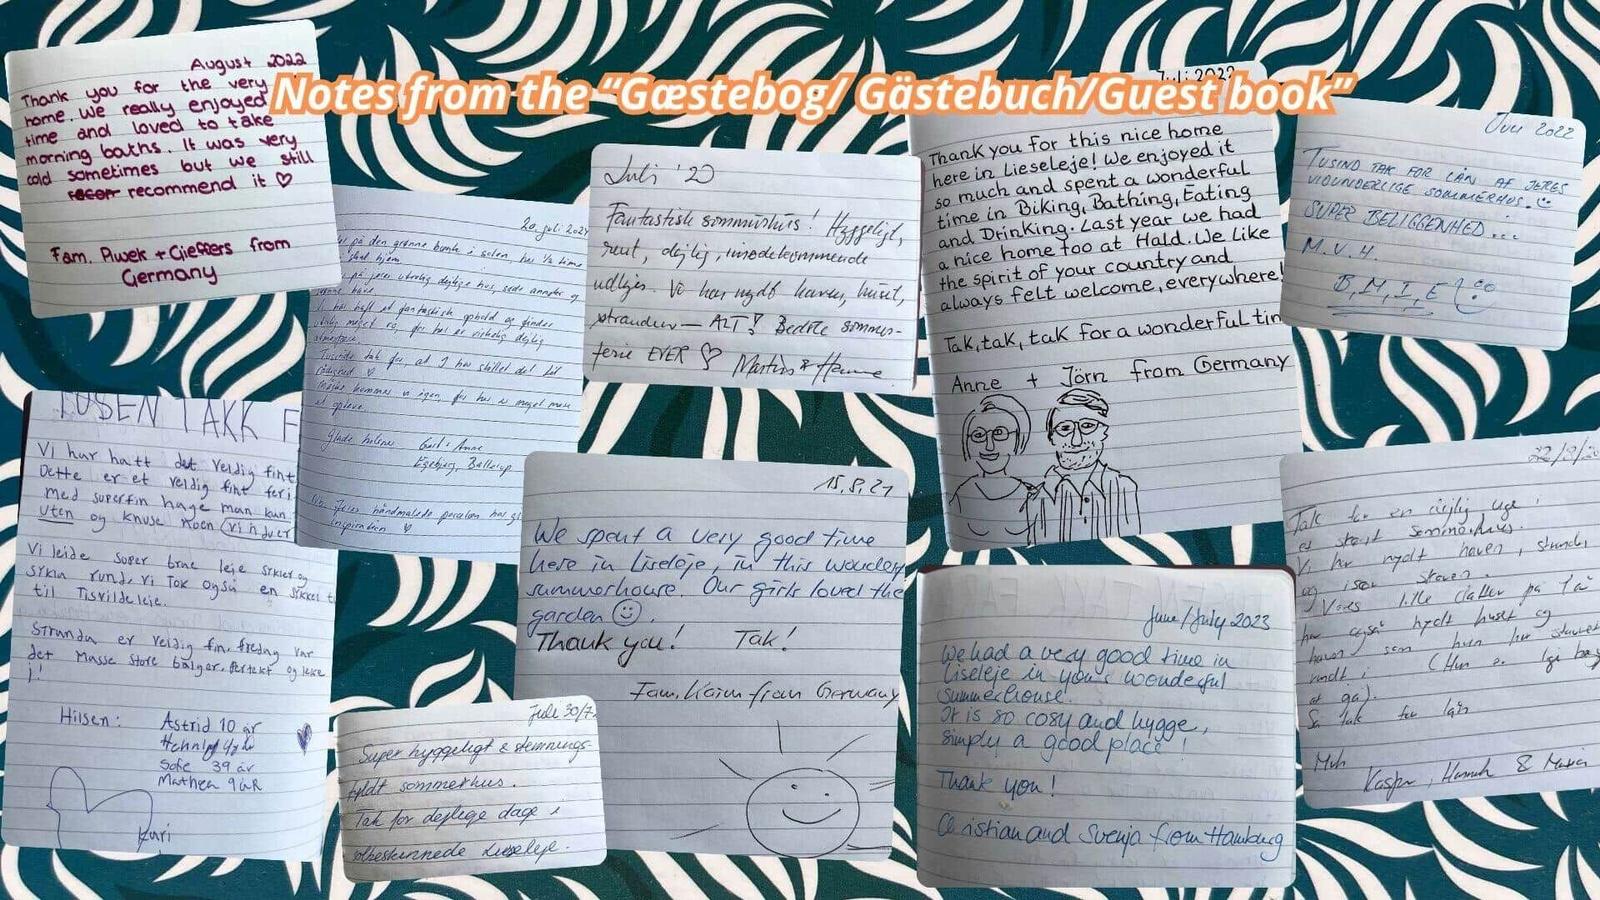 Notes from the “Gæstebog/ Gästebuch/Guest book”
August 2022
Thank you for the very
home. We really enjoyed
time and loved to take
morning baths. It was very
cold sometimes but we still
recommend it ♡
Fam. Piwek + Gieffers from
Germany
20. juli 202
på den grønne bænk i solen, har ½ time
hjem
på jeres utrolig dejlige hus, søde anneks og
I har haft et fantastisk ophold og finder
utrolig meget ro, for her er virkelig dejlig
Tusinde tak for at I har stillet det til
rådighed ♡
kommer vi igen, for her er meget mere
at opleve.
Glade hilsner
Anne
Egebjerg, Ballerup
Jeres håndmalede porcelæn
inspiration ♡
Juli '20
Fantastisk sommerhus! Hyggeligt,
rent, dejlig, imødekommende
udlejer. Vi har nydt haven, huset,
stranden — ALT! Bedste sommer-
ferie EVER ♡ Martin & Hanne
Juli 2022
Thank you for this nice home
here in Lieseleje! We enjoyed it
so much and spent a wonderful
time in Biking, Bathing, Eating
and Drinking. Last year we had
a nice home too at Hald. We like
the spirit of your country and
always felt welcome, everywhere!
Tak, tak, tak for a wonderful tim
Anne + Jörn from Germany
Juli 2022
TUSIND TAK FOR LÅN AF JERES
VIDUNDERLIGE SOMMERHUS. ☺
SUPER BELIGGENHED...
M.V.H.
B, M, I, E
TUSEN TAKK F
Vi har hatt det veldig fint
Dette er et veldig fint feri
med superfin hage man kun
uten og knuse noen (vinduer
Vi leide super bra leie sykler og
sykla rundt. Vi tok også en sykkelt
til Tisvildeleie.
Stranda er veldig fin, fredag var
det masse store bølger. Perfekt og leke
i!
Hilsen: Astrid 10 år
Sofie 39 år
Mathea 9 åR
Kari
Juli 30/7
Super hyggeligt & stemnings-
fyldt sommerhus.
Tak for dejlige dage i
solbeskinnede Liseleje.
15.8.21
We spent a very good time
here in Liseleje, in this wonder
summerhouse. Our girls loved the
garden ☺
Thank you! Tak!
Fam. Kaim from Germany
June/July 2023
We had a very good time in
Liseleje in yours wonderful
summerhouse!
It is so cosy and hygge,
simply a good place!
Thank you!
Christian and Svenja from Hamburg
22/8/20
Tak for en dejlig uge i
et skønt sommerhus.
Vi har nydt haven, strand,
og især skoven.
Vores lille datter på 1 år
har også nydt huset og
haven som hun har stavret
rundt i (Hun er lige beg
at gå).
Så tak for lån
Mvh
Kasper, Hannah & Maria